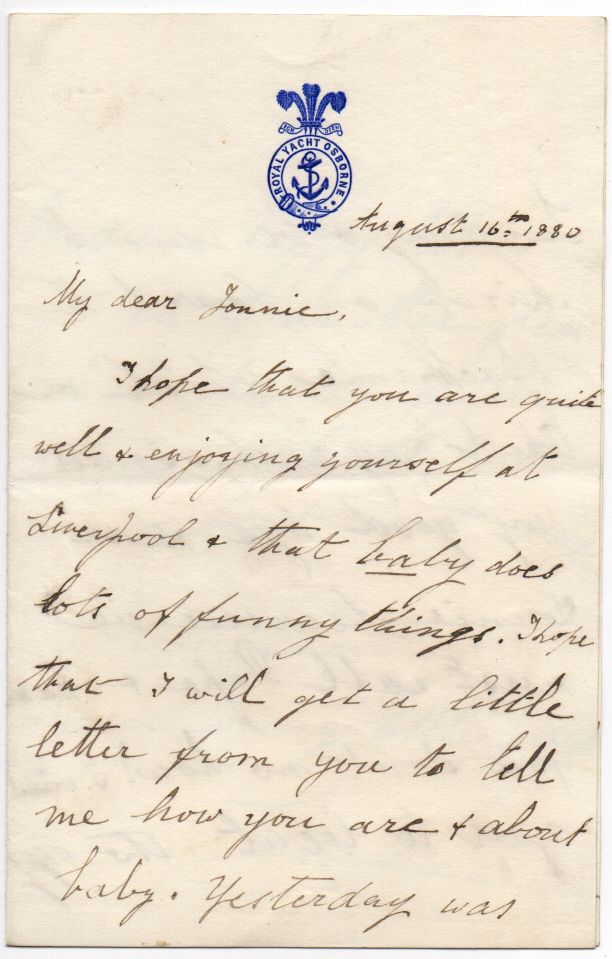 ICH DIEN
ROYAL YACHT OSBORNE
August 16th 1880
My dear Tonnie,
I hope that you are quite
well & enjoying yourself at
Liverpool & that baby does
lots of funny things. I hope
that I will get a little
letter from you to tell
me how you are & about
baby. Yesterday was